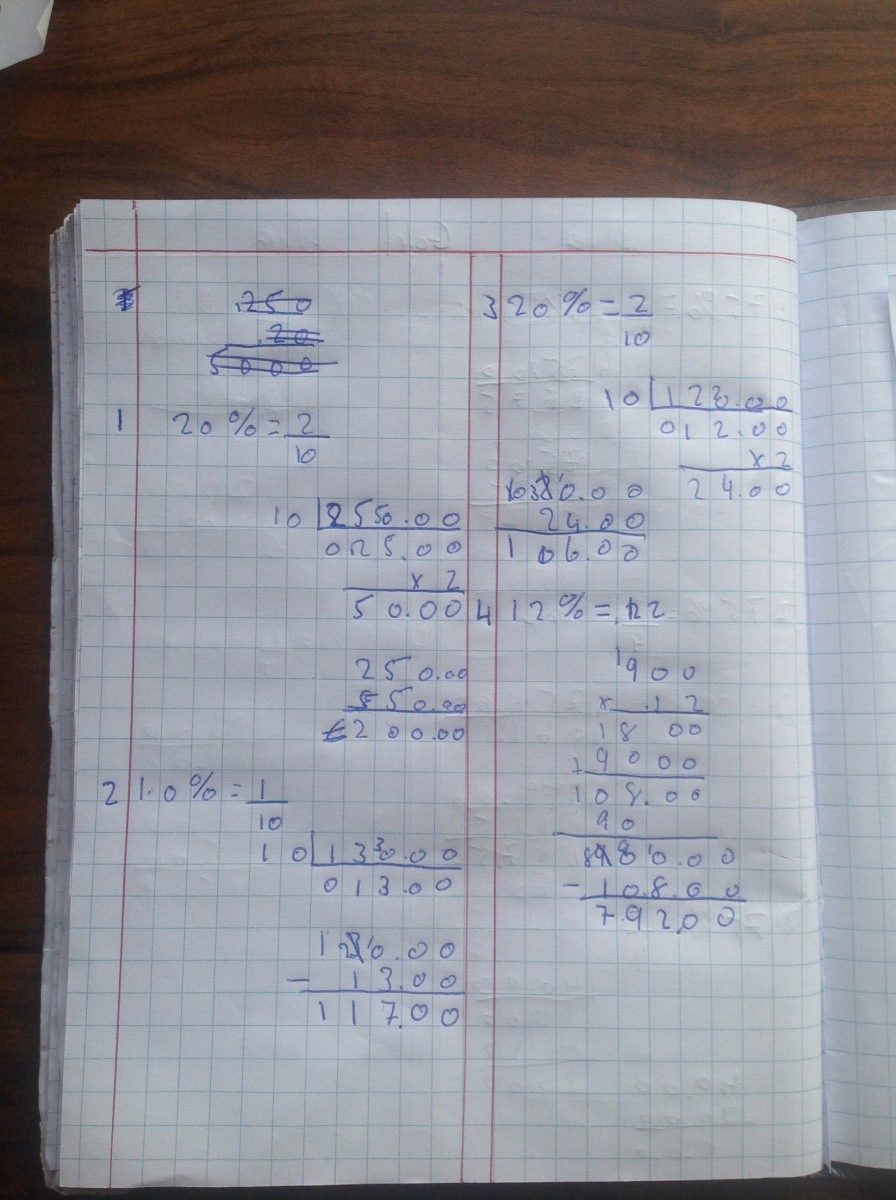 250
20
5000
1 20% = 2
10
10 250.00
025.00
x 2
50.00
250.00
50.00
€200.00
2 10% = 1
10
10 130.00
013.00
120.00
- 13.00
117.00
3 20% = 2
10
10 120.00
012.00
x 2
24.00
24.00
106.00
4 12% = .12
900
x .12
18 00
+ 9000
108.00
90
- 108.00
792.00